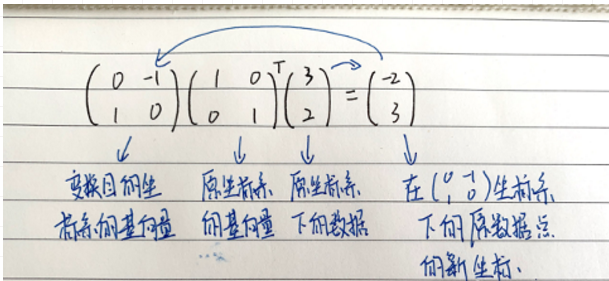 (0 -1; 1 0) (1 0; 0 1)^T (3; 2) = (-2; 3)
变换目的坐
标系的基向量
原坐标系
的基向量
原坐标系
下的数据
在(0 -1; 1 0)坐标系
下的原数据点
的新坐标.